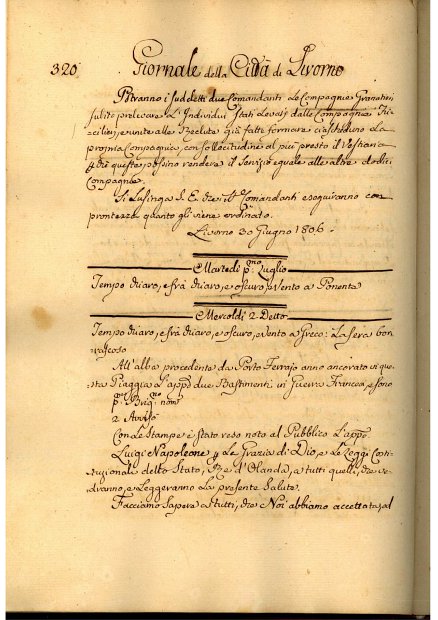 320 Giornale della Città di Livorno
Potranno i sudetti due Comandanti Le Compagnie Granatieri
subito prelevare L'Individui Stati Levati dalle Compagnie Fu-
cilieri, e unite alle Reclute già fatte formare ciascheduno La
propria Compagnia, con sollecitudine al più presto il Vestiario
queste possino rendere il Servizio eguale alle altre dodici
Compagnie.
Si Lusinga S. E. che i Comandanti eseguiranno con
prontezza quanto gli viene ordinato.
Livorno 30 Giugno 1806.
Martedì p:mo Luglio
Tempo chiaro, e frà chiaro, e oscuro, Vento a Ponente
Mercoldì 2 Detto
Tempo chiaro, e frà chiaro, e oscuro, Vento a Greco: La sera bor-
rascoso
All'alba procedente da Porto Ferrajo anno ancorato in que-
sta Piaggia L'app:i due Bastimenti in Guerra Francesi, e sono
p:mo Brig:no nom:
2 Avviso
Con Le Stampe è stato reso noto al Pubblico L'app:
Luigi Napoleone La Grazia di Dio, e Le Leggi Costi-
tuzionale dello Stato, Re d'Olanda, a tutti quelli, che ve-
dranno, e Leggeranno La presente Salute.
Facciamo Sapere a tutti, che Noi abbiamo accettata, ed